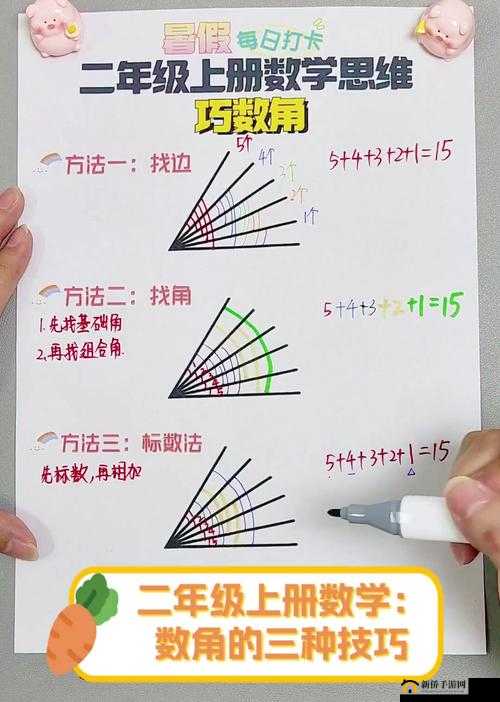 暑假 每日打卡
二年级上册数学思维
巧数角
方法一：找边
5个
4个
3个
2个
1个
5+4+3+2+1=15
方法二：找角
1.先找基础角
2.再找组合角.
5+4+3+2+1=15
1 2 3 4 5
方法三：标数法
先标数,再相加
5+4+3+2+1=15
1 2 3 4 5
二年级上册数学：
数角的三种技巧
新侨手游网